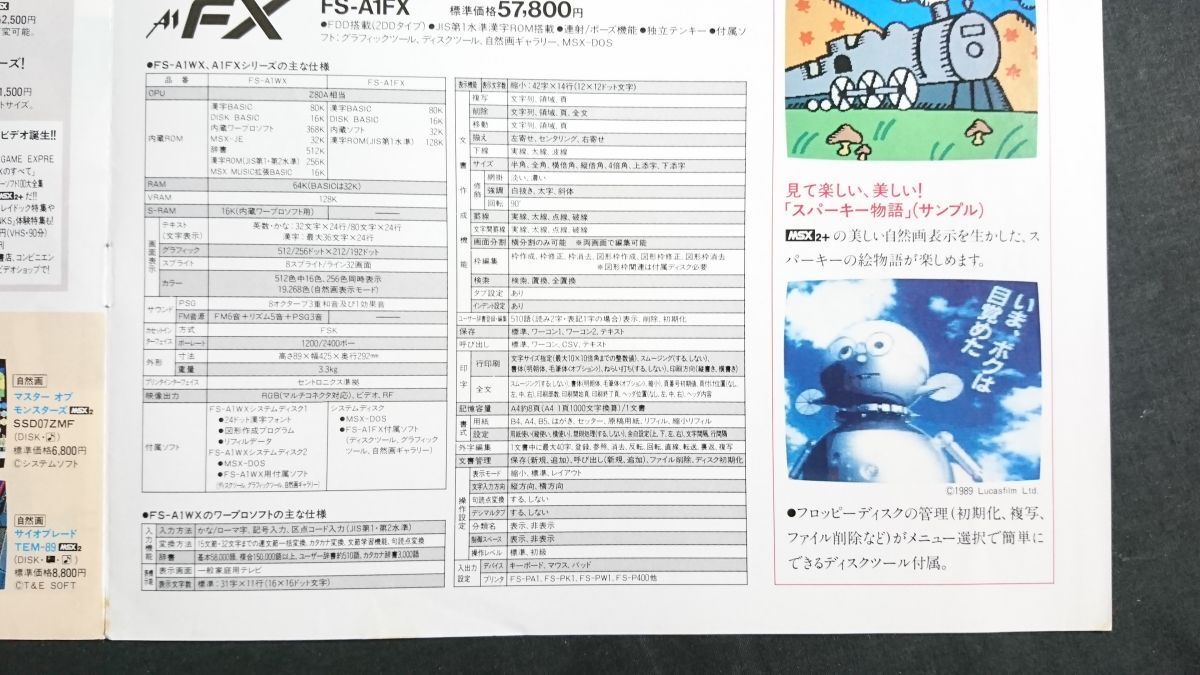 2,500円
変可能。
ーズ!
1,500円
トサイズ。
ビデオ誕生!!
GAME EXPRE
Xのすべて」
ーソフト100大全集
MSX2+だ!!
レイドック特集や
NKS」体験特集も!
円(VHS・90分)
書店、コンビニエン
ビデオショップで!
自然画
マスター オブ
モンスターズ MSX2
SSD07ZMF
(DISK・♪)
標準価格6,800円
©システムソフト
自然画
サイオブレード
TEM-89 MSX2
標準価格8,800円
©T&E SOFT
A1 FX
FS-A1FX 標準価格57,800円
●FDD搭載(2DDタイプ)●JIS第1水準漢字ROM搭載●連射/ポーズ機能●独立テンキー●付属ソ
フト:グラフィックツール、ディスクツール、自然画ギャラリー、MSX-DOS
●FS-A1WX、A1FXシリーズの主な仕様
品番 FS-A1WX FS-A1FX
CPU Z80A相当
内蔵ROM
漢字BASIC 80K 漢字BASIC 80K
DISK BASIC 16K DISK BASIC 16K
内蔵ワープロソフト 368K 内蔵ソフト 32K
MSX-JE 32K 漢字ROM(JIS第1水準) 128K
辞書 512K
漢字ROM(JIS第1・第2水準) 256K
MSX MUSIC拡張BASIC 16K
RAM 64K(BASICは32K)
VRAM 128K
S-RAM 16K(内蔵ワープロソフト用)
画面表示
テキスト(文字表示) 英数・かな:32文字×24行/80文字×24行
漢字:最大36文字×24行
グラフィック 512/256ドット×212/192ドット
スプライト 8スプライト/ライン32画面
カラー 512色中16色、256色同時表示
19,268色(自然画表示モード)
サウンド PSG 8オクターブ3重和音及び1効果音
FM音源 FM6音+リズム5音+PSG3音
カセットインターフェイス 方式 FSK
ボーレート 1200/2400ボー
外形 寸法 高さ89×幅425×奥行292mm
重量 3.3kg
プリンタインターフェイス セントロニクス準拠
映像出力 RGB(マルチコネクタ対応)、ビデオ、RF
付属ソフト
FS-A1WXシステムディスク1 システムディスク
●24ドット漢字フォント ●MSX-DOS
●図形作成プログラム ●FS-A1FX付属ソフト
●リフィルデータ (ディスクツール、グラフィック
FS-A1WXシステムディスク2 ツール、自然画ギャラリー)
●MSX-DOS
●FS-A1WX用付属ソフト
(ディスクツール、グラフィックツール、自然画ギャラリー)
●FS-A1WXのワープロソフトの主な仕様
入力機能 入力方法 かな/ローマ字、記号入力、区点コード入力(JIS第1・第2水準)
変換方法 15文節・32文字までの連文節一括変換、カタカナ変換、文節学習機能、句読点変換
辞書 基本58,000語、複合150,000語以上、ユーザー辞書約510語、カタカナ辞書3,000語
表示画面 一般家庭用テレビ
表示文字数 標準:31字×11行(16×16ドット文字)
表示機能 表示文字数 縮小:42字×14行(12×12ドット文字)
文書作成機能
複写 文字列、領域、頁
削除 文字列、領域、頁、全文
移動 文字列、領域、頁
揃え 左寄せ、センタリング、右寄せ
下線 実線、太線、波線
文字サイズ 半角、全角、横倍角、縦倍角、4倍角、上添字、下添字
修飾 網掛 淡い、濃い
強調 白抜き、太字、斜体
回転 90°
罫線 実線、太線、点線、破線
文字間罫線 実線、太線、点線、破線
画面分割 横分割のみ可能 ※両画面で編集可能
枠編集 枠作成、枠修正、枠消去、図形枠作成、図形枠修正、図形枠消去
※図形枠関連は付属ディスク必要
検索 検索、置換、全置換
タブ設定 あり
インデント設定 あり
ユーザー辞書登録・編集 510語(読み2字・表記1字の場合)表示、削除、初期化
保存 標準、ワーコン1、ワーコン2、テキスト
呼び出し 標準、ワーコン、CSV、テキスト
印字 行印刷 文字サイズ指定(最大10×10倍角までの整数値)、スムージング(する、しない)、
書体(明朝体、毛筆体(オプション)、ねらい打ち(する、しない)、印刷方向(縦書き、横書き)
全文 スムージング(する、しない)、書体(明朝体、毛筆体(オプション)、縮小)、頁番号初期値、頁付け位置(なし、
左、中、右)、印刷部数、印刷開始頁、印刷終了頁、ヘッダ位置(なし、左、中、右)、ヘッダ内容
記憶容量 A4約8頁(A4 1頁1000文字換算)/1文書
書式 用紙 B4、A4、B5、はがき、セッター、原稿用紙、リフィル、縮小リフィル
設定 用紙使い(縦使い、横使い)、禁則処理(する、しない)、余白設定(上、下、左、右)、文字間隔、行間隔
外字編集 1文書中に最大40字、登録、参照、消去、反転、回転、直線、転送、裏返、複写
文書管理 保存(新規、追加)、呼び出し(新規、追加)、ファイル削除、ディスク初期化
操作設定
表示モード 縮小、標準、レイアウト
文字入力方向 縦方向、横方向
句読点変換 する、しない
デシマルタブ する、しない
分類名 表示、非表示
制御スペース 表示、非表示
操作レベル 標準、初級
入出力設定 デバイス キーボード、マウス、パッド
プリンタ FS-PA1、FS-PK1、FS-PW1、FS-P400他
見て楽しい、美しい!
「スパーキー物語」(サンプル)
MSX2+の美しい自然画表示を生かした、ス
パーキーの絵物語が楽しめます。
いま、ボクは
目覚めた
©1989 Lucasfilm Ltd.
●フロッピーディスクの管理(初期化、複写、
ファイル削除など)がメニュー選択で簡単に
できるディスクツール付属。